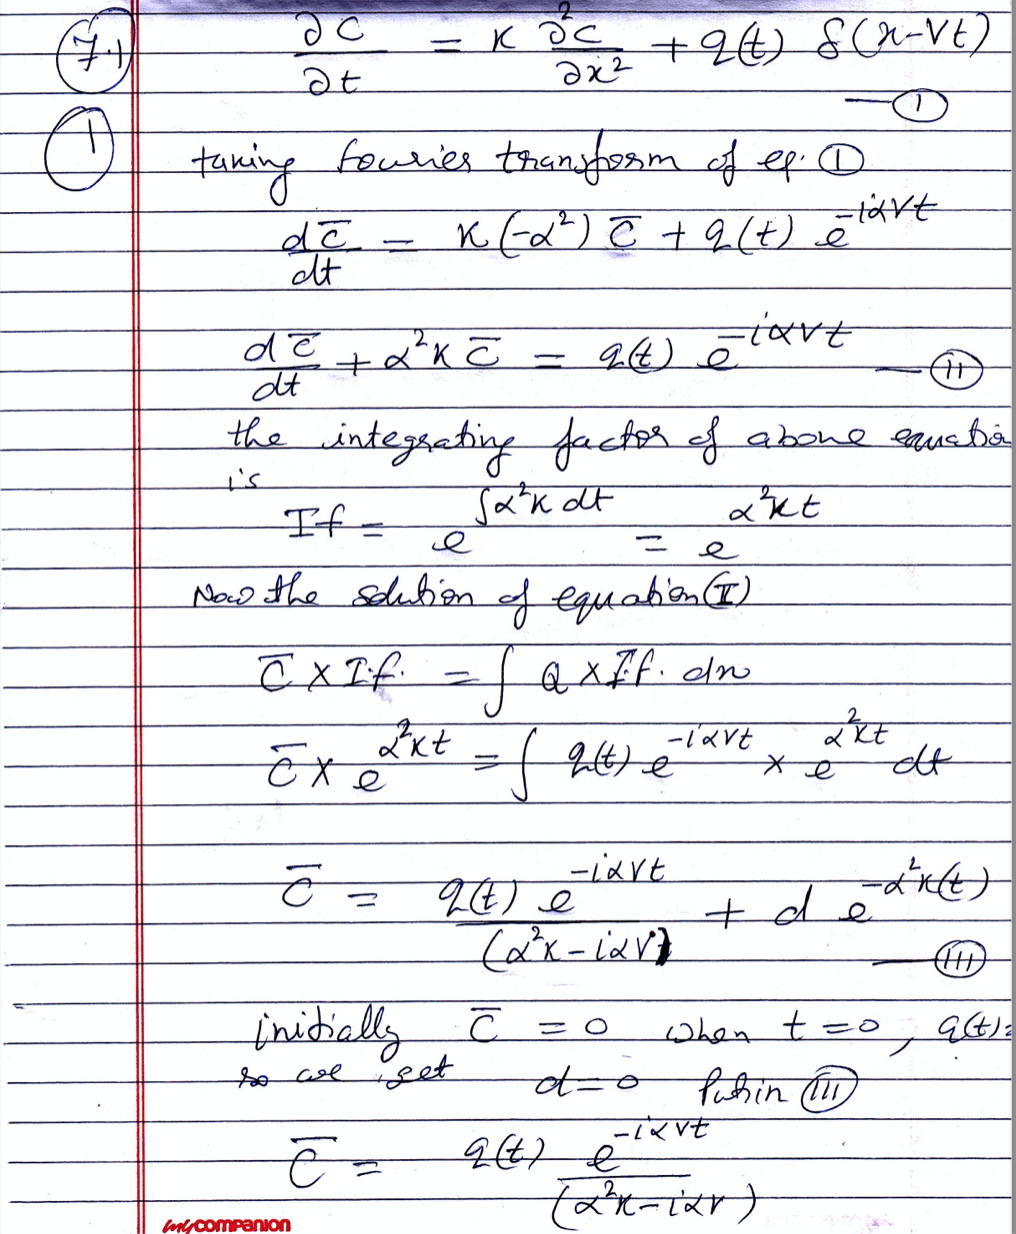 7.1
∂C/∂t = K ∂²C/∂x² + q(t) δ(x-Vt)
— I
1
taking fouries transform of eq. I
dC̄/dt = K(-α²) C̄ + q(t) e^{-iαVt}
dC̄/dt + α²K C̄ = q(t) e^{-iαVt} — II
the integrating factor of above equatio
is
If = e^{∫α²K dt} = e^{α²Kt}
Now the solution of equation (II)
C̄ × I.f. = ∫ Q × I.f. dn
C̄ × e^{α²Kt} = ∫ q(t) e^{-iαVt} × e^{α²Kt} dt
C̄ = q(t) e^{-iαVt} / (α²K - iαV) + d e^{-α²K(t)}
— III
initially C̄ = 0 when t = 0, q(t)=
so we get d = 0 Put in III
C̄ = q(t) e^{-iαVt} / (α²K - iαV)
mycompanion